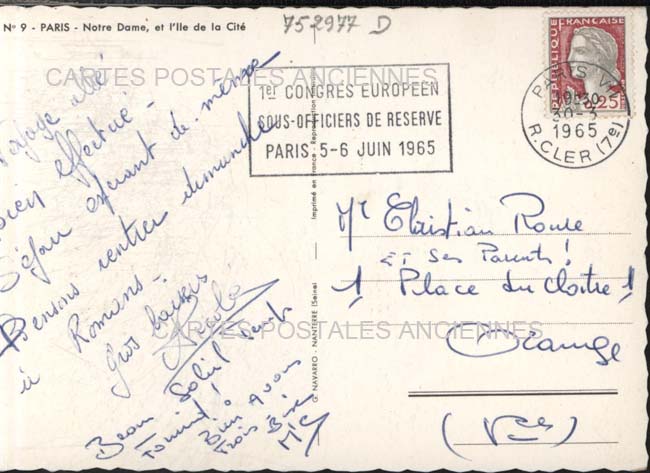 N° 9 - PARIS - Notre Dame, et l'Ile de la Cité
75-2977 D
CARTES POSTALES ANCIENNES
1er CONGRES EUROPEEN
SOUS-OFFICIERS DE RESERVE
PARIS 5-6 JUIN 1965
REPUBLIQUE FRANÇAISE
0,25
PARIS VII
30-3
1965
R.CLER (7e)
Voyage
bien effectué -
Séjour de même
Pensons rentrer dimanche
à Romans -
Gros baisers
Beau Soleil
Mr Christian Roure
ET Ses Parents !
1 Place du Cloître 1
Orange
(Vse)
Imprimé en France - Reproduction
G. NAVARRO - NANTERRE (Seine)
CARTES POSTALES ANCIENNES